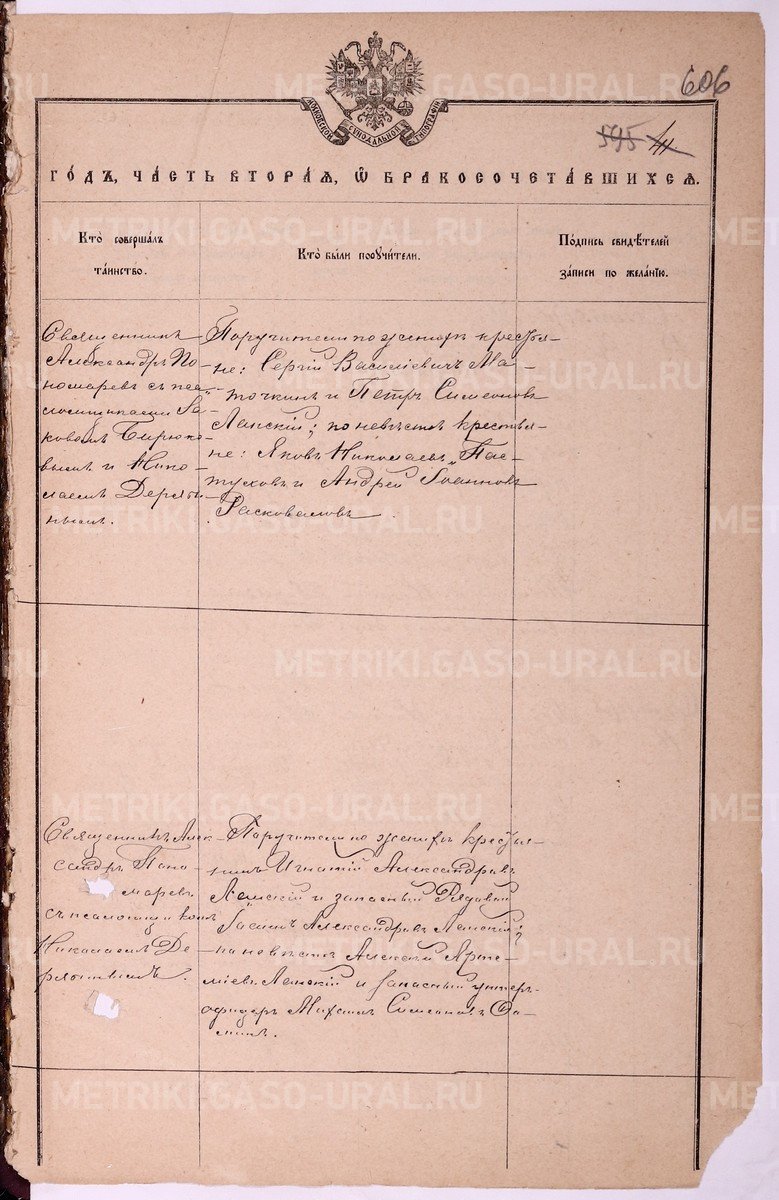 606
595 41
МОСКОВСКОЙ СѴНОДАЛЬНОЙ ТИПОГРАФІИ
ГОДЪ, ЧАСТЬ ВТОРАЯ, Ѡ БРАКОСОЧЕТАВШИХСЯ.
Кто совершалъ
таинство.
Кто были поручители.
Подпись свидѣтелей
записи по желанію.
Священникъ
Александръ По-
номаревъ съ пса-
ломщиками Іа-
ковомъ Бирюко-
вымъ и Нико-
лаемъ Дерягы-
нымъ.
Поручители по женихѣ крестья-
не: Сергій Василіевичъ Ма-
точкинъ и Петръ Симеоновъ
Ляпскій; по невѣстѣ крестья-
не: Яковъ Николаевъ Пас-
туховъ и Андрей Іоанновъ
Расковаловъ.
Священникъ Алек-
сандръ Поно-
маревъ
съ псаломщикомъ
Николаемъ Де-
рягинымъ.
Поручители по женихѣ кресть-
нинъ Игнатій Александровъ
и запасный Рядовый
Александровъ
по невѣстѣ Алексѣй Арте-
міевъ и запасный унтеръ-
офицеръ Михаилъ Симеоновъ Фо-
минъ.
METRIKI.GASO-URAL.RU